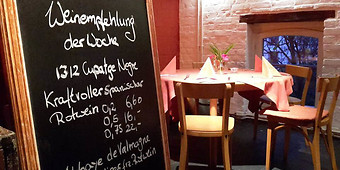 Weinempfehlung
der Woche
1312 Cupatge Negre
Kraftvoller spanischer
Rotwein 0,2 6,60
0,5 16,-
0,75 22,-
Abbaye de Valmagne